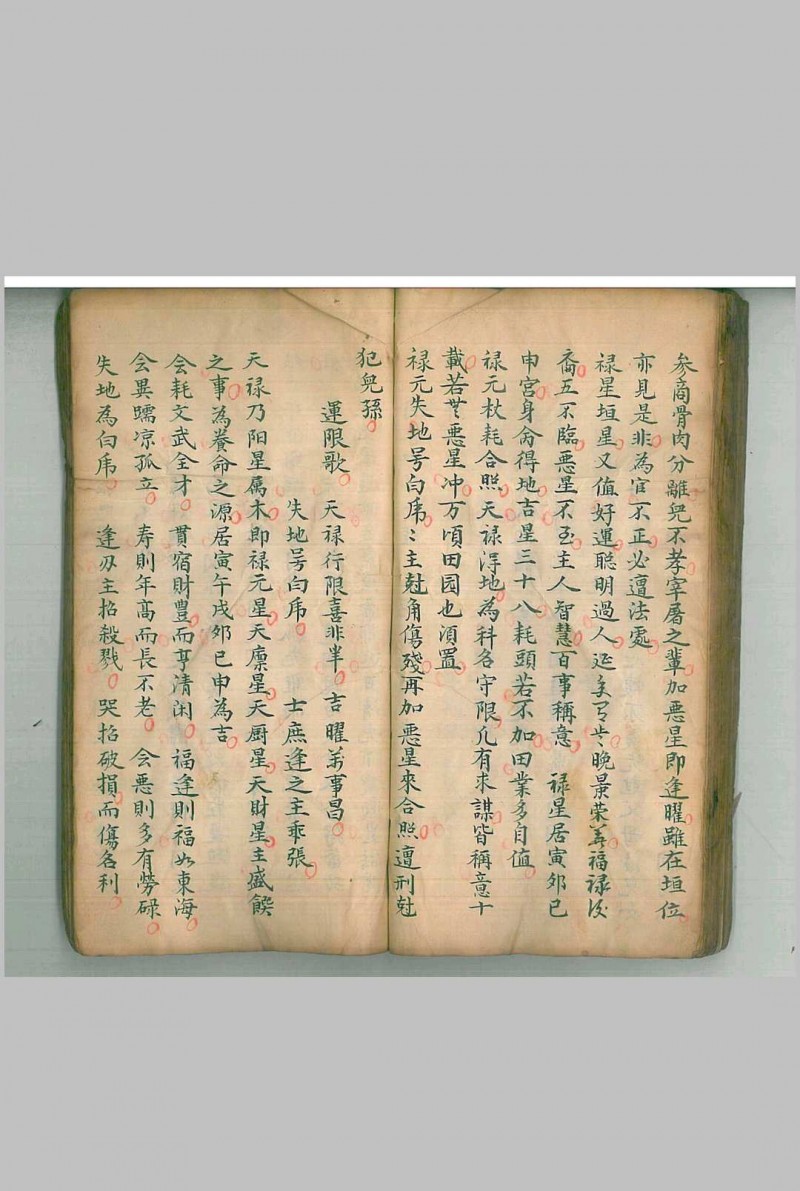 參商骨肉分離兒不孝宰屠之輩加恶星即逢曜雖在垣位
亦見是非為官不正必遭法處
禄星垣星又值好運聡明過人晚景荣華福禄
裔五不臨恶星不至主人智慧百事稱意 禄星居寅夘巳
申宮身命得地吉星三十八耗頭若不加田業多自值
禄元杖耗合照天禄得地為科名守限凡有求謀皆稱意十
載若恶星冲万頃田园也須置
禄元失地号白虎〻主尅角傷殘再加恶星來合照遭刑尅
犯兒孫
運限歌 天禄行限喜非半 吉曜萬事昌
失地号白虎 士庶逢之主乖張
天禄乃阳星属木即禄元星天廪星天厨星天財星主盛饌
之事為養命之源居寅午戌夘巳申為吉
会耗文武全才 貫宿財豐而亨清闲 福逢則福如東海
会異孺凉孤立 寿則年高而長不老 会恶則多有勞碌
失地為白虎 逢刃主招殺戮 哭招破損而傷名利